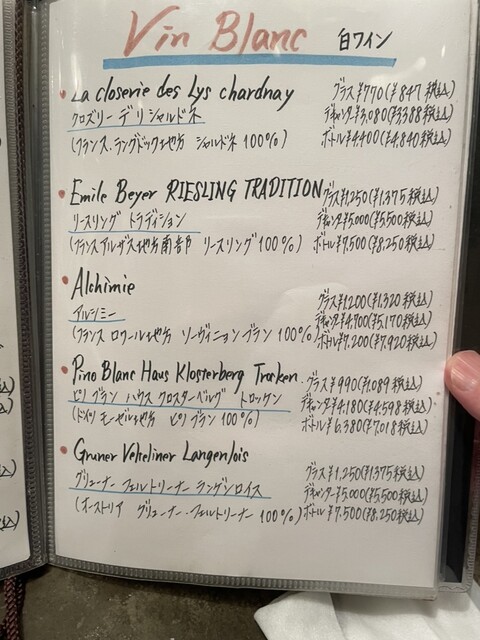 Vin Blanc 白ワイン
La closerie des Lys chardnay グラス¥770(¥847税込)
クロズリー デ リ シャルドネ デキャンタ¥3,080(¥3,388税込)
(フランス、ラングドック地方 シャルドネ 100%) ボトル¥4,400(¥4,840税込)
Emile Beyer RIESLING TRADITION グラス¥1,250(¥1,375税込)
リースリング トラディション デキャンタ¥5,000(¥5,500税込)
(フランスアルザス地方南部 リースリング100%) ボトル¥7,500(¥8,250税込)
Alchimie グラス¥1200(¥1,320税込)
アルシミー デキャンタ¥4,700(¥5,170税込)
(フランス ロワール地方 ソーヴィニョンブラン 100%) ボトル¥7,200(¥7,920税込)
Pino Blanc Haus Klosterberg Trocken. グラス¥990(¥1,089税込)
ピノ ブラン ハウス クロスターベルグ トロッケン デキャンタ¥4,180(¥4,598税込)
(ドイツ モーゼル地方 ピノ ブラン 100%) ボトル¥6,380(¥7,018税込)
Gruner Velteliner Langenlois グラス¥1,250(¥1,375税込)
グリューナー フェルトリーナー ランゲンロイス デキャンター¥5,000(¥5,500税込)
(オーストリア グリューナー・フェルトリーナー 100%) ボトル¥7,500(¥8,250税込)